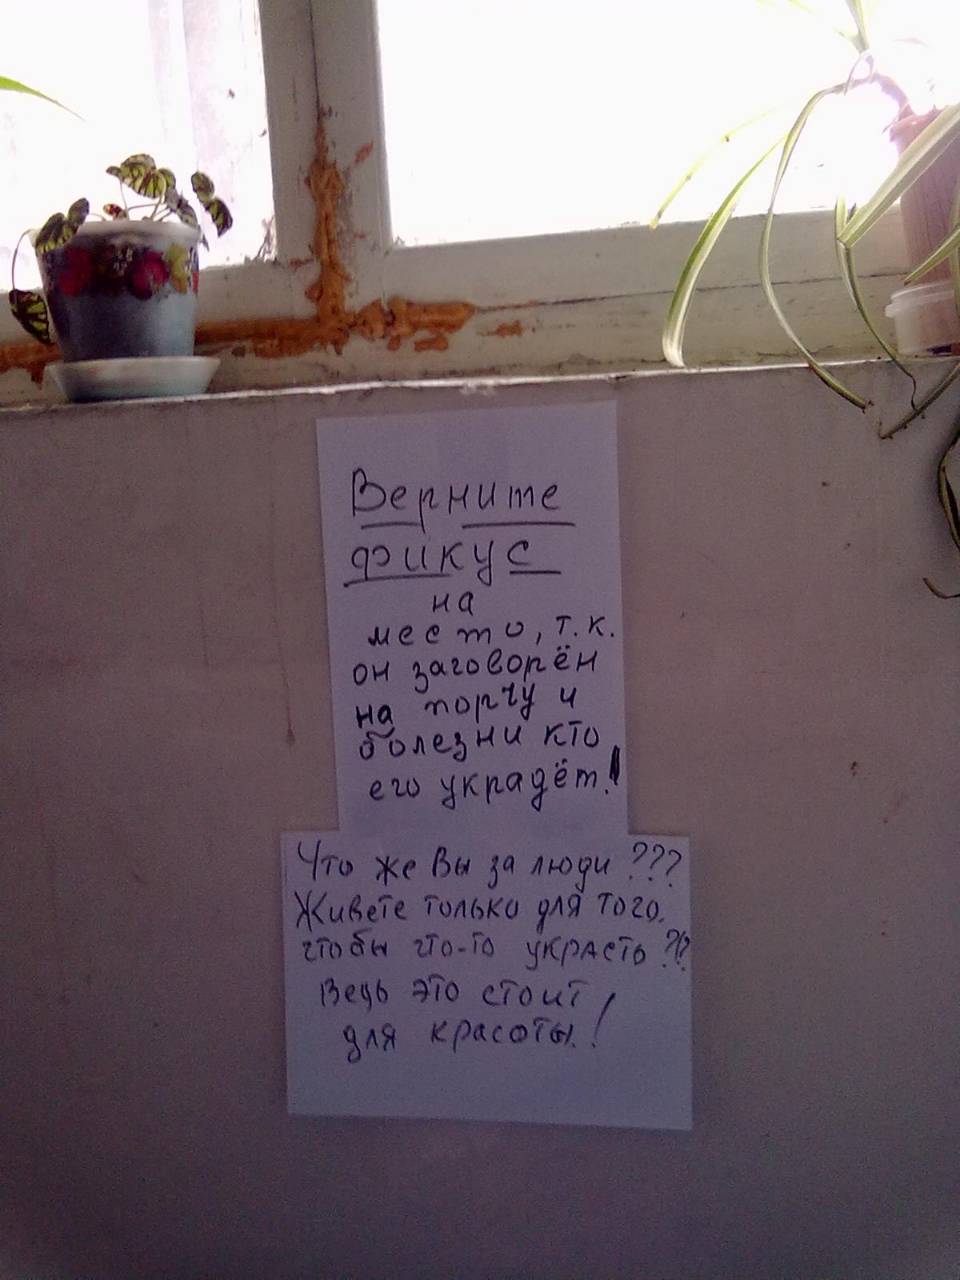 Верните
фикус
на
место, т.к.
он заговорён
на порчу и
болезни кто
его украдёт!
Что же Вы за люди???
Живете только для того,
чтобы что-то украсть??
Ведь это стоит
для красоты!